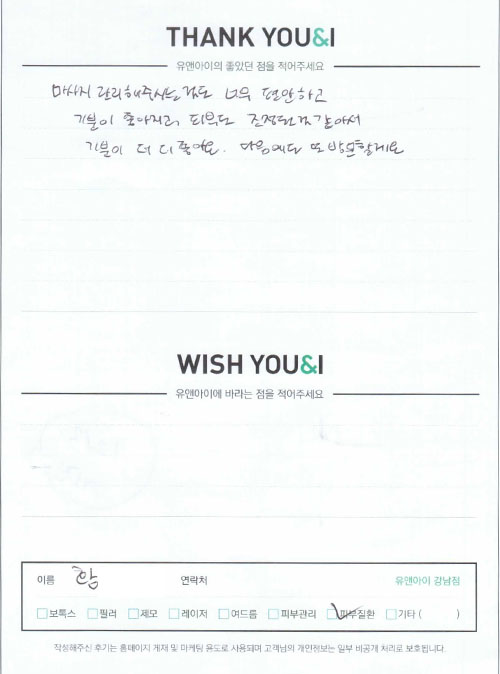 THANK YOU&I
유앤아이의 좋았던 점을 적어주세요
마사지 관리해주시는 것도 너무 편안하고
기분이 좋아지고 피부도 진정된것 같아서
기분이 더 더 좋아요. 다음에도 또 방문할게요
WISH YOU&I
유앤아이에 바라는 점을 적어주세요
이름 함 연락처 유앤아이 강남점
보톡스 필러 제모 레이저 여드름 피부관리 피부질환 기타 ( )
작성해주신 후기는 홈페이지 게재 및 마케팅 용도로 사용되며 고객님의 개인정보는 일부 비공개 처리로 보호됩니다.